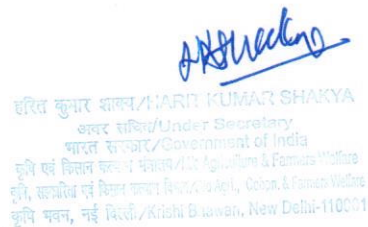 हरित कुमार शाक्य/HARIT KUMAR SHAKYA
अवर सचिव/Under Secretary
भारत सरकार/Government of India
कृषि एवं किसान कल्याण मंत्रालय/Agriculture & Farmers Welfare
कृषि, एवं किसान कल्याण विभाग/Agri., & Farmers Welfare
कृषि भवन, नई दिल्ली/Krishi Bhawan, New Delhi-110001